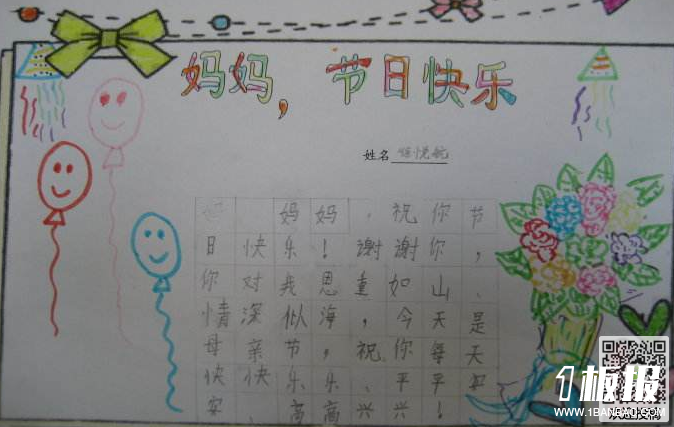 妈妈，节日快乐
姓名 悦航
妈妈，祝你节
日快乐！谢谢你，
你对我恩重如山、
情深似海，今天是
母亲节，祝你每天
快快乐乐、平平安
安、高高兴兴！
1板报
WWW.1BANBAO.COM
欢迎投稿